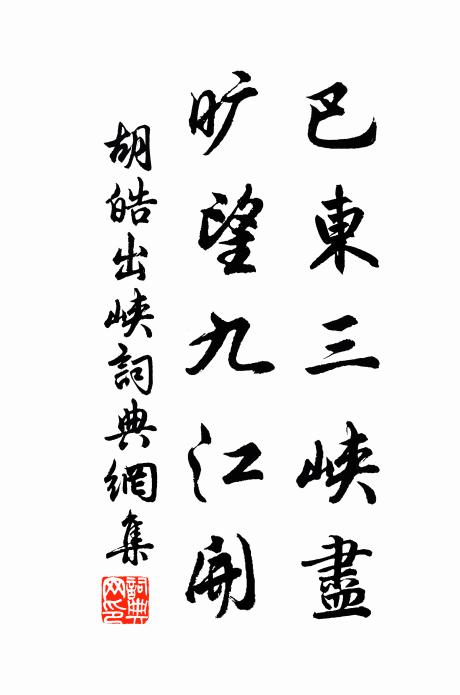 巴東三峽盡
旷望九江開
胡皓出峽詞典網集
詞典網印